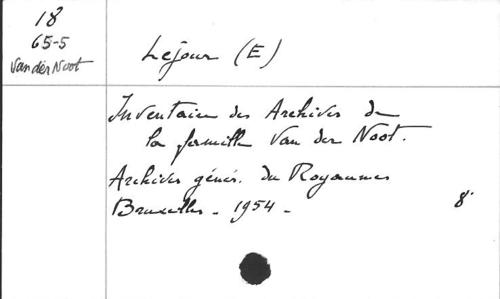 18
65-5
Van der Noot
Lejour (E)
Inventaire des Archives de
la famille Van der Noot.
Archives génér. du Royaume
Bruxelles - 1954 -
8°